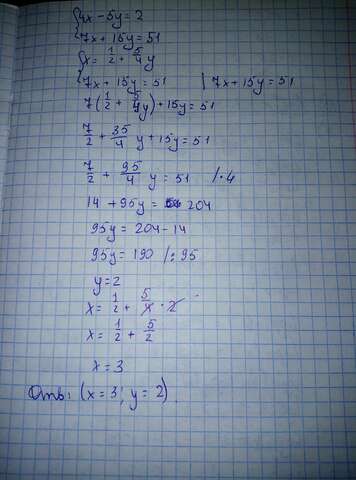 {4x - 5y = 2
7x + 15y = 51
{x = 1/2 + 5/4 y
7x + 15y = 51 | 7x + 15y = 51
7(1/2 + 5/4 y) + 15y = 51
7/2 + 35/4 y + 15y = 51
7/2 + 95/4 y = 51 /·4
14 + 95y = 204
95y = 204 - 14
95y = 190 /: 95
y = 2
x = 1/2 + 5/4 · 2
x = 1/2 + 5/2
x = 3
Отв: (x = 3; y = 2).